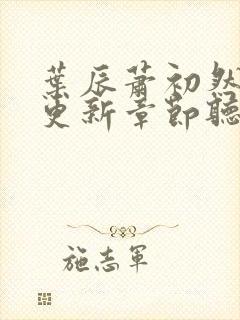 葉辰蕭初然
更新章節聽
施志軍